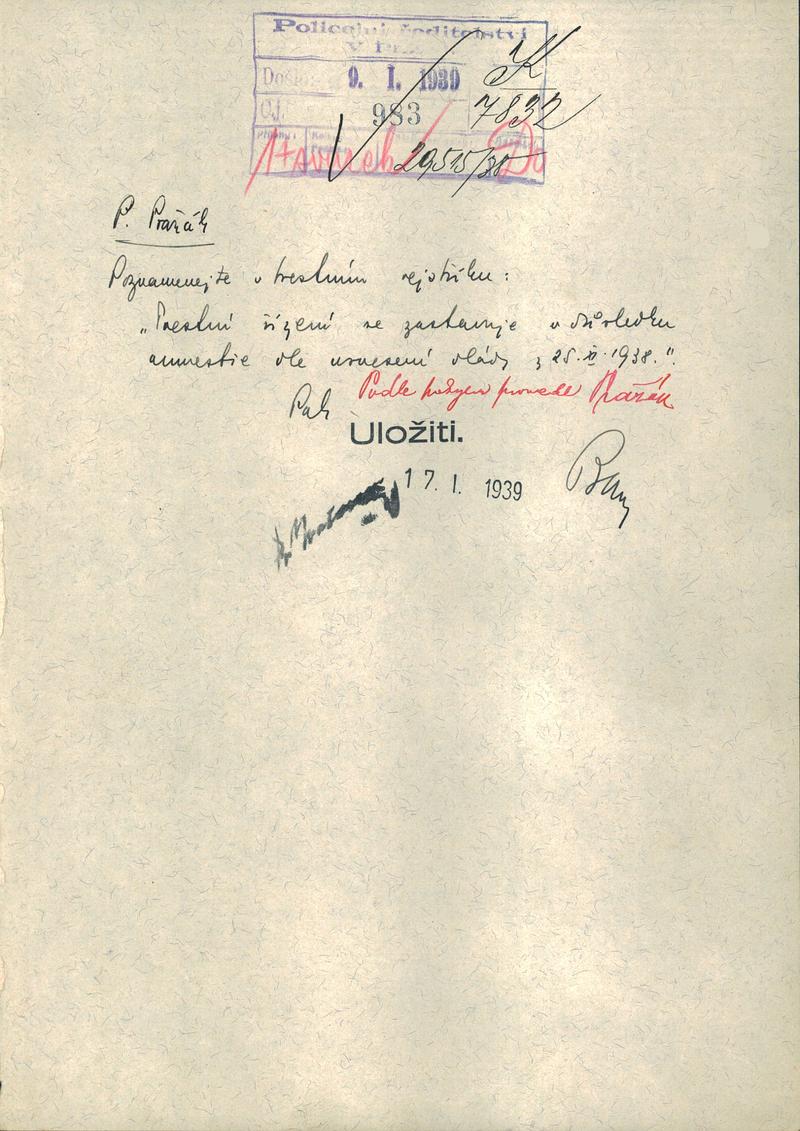 Policejní ředitelství
v Praze
Došlo 9. I. 1939 K
Čj. 983 7832
29515/38
P. Pražák
Poznamenejte v trestním rejstříku:
„Trestní řízení se zastavuje v důsledku
amnestie dle usnesení vlády z 25. XI. 1938.“
Podle pokynu provedl Pražák
Pak
Uložiti.
17. I. 1939